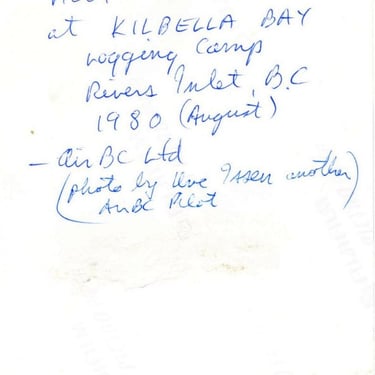 at KILBELLA BAY
Logging Camp
Rivers Inlet, B.C
1980 (August)
- Air BC Ltd
(photo by Uve Issen another)
AirBC Pilot